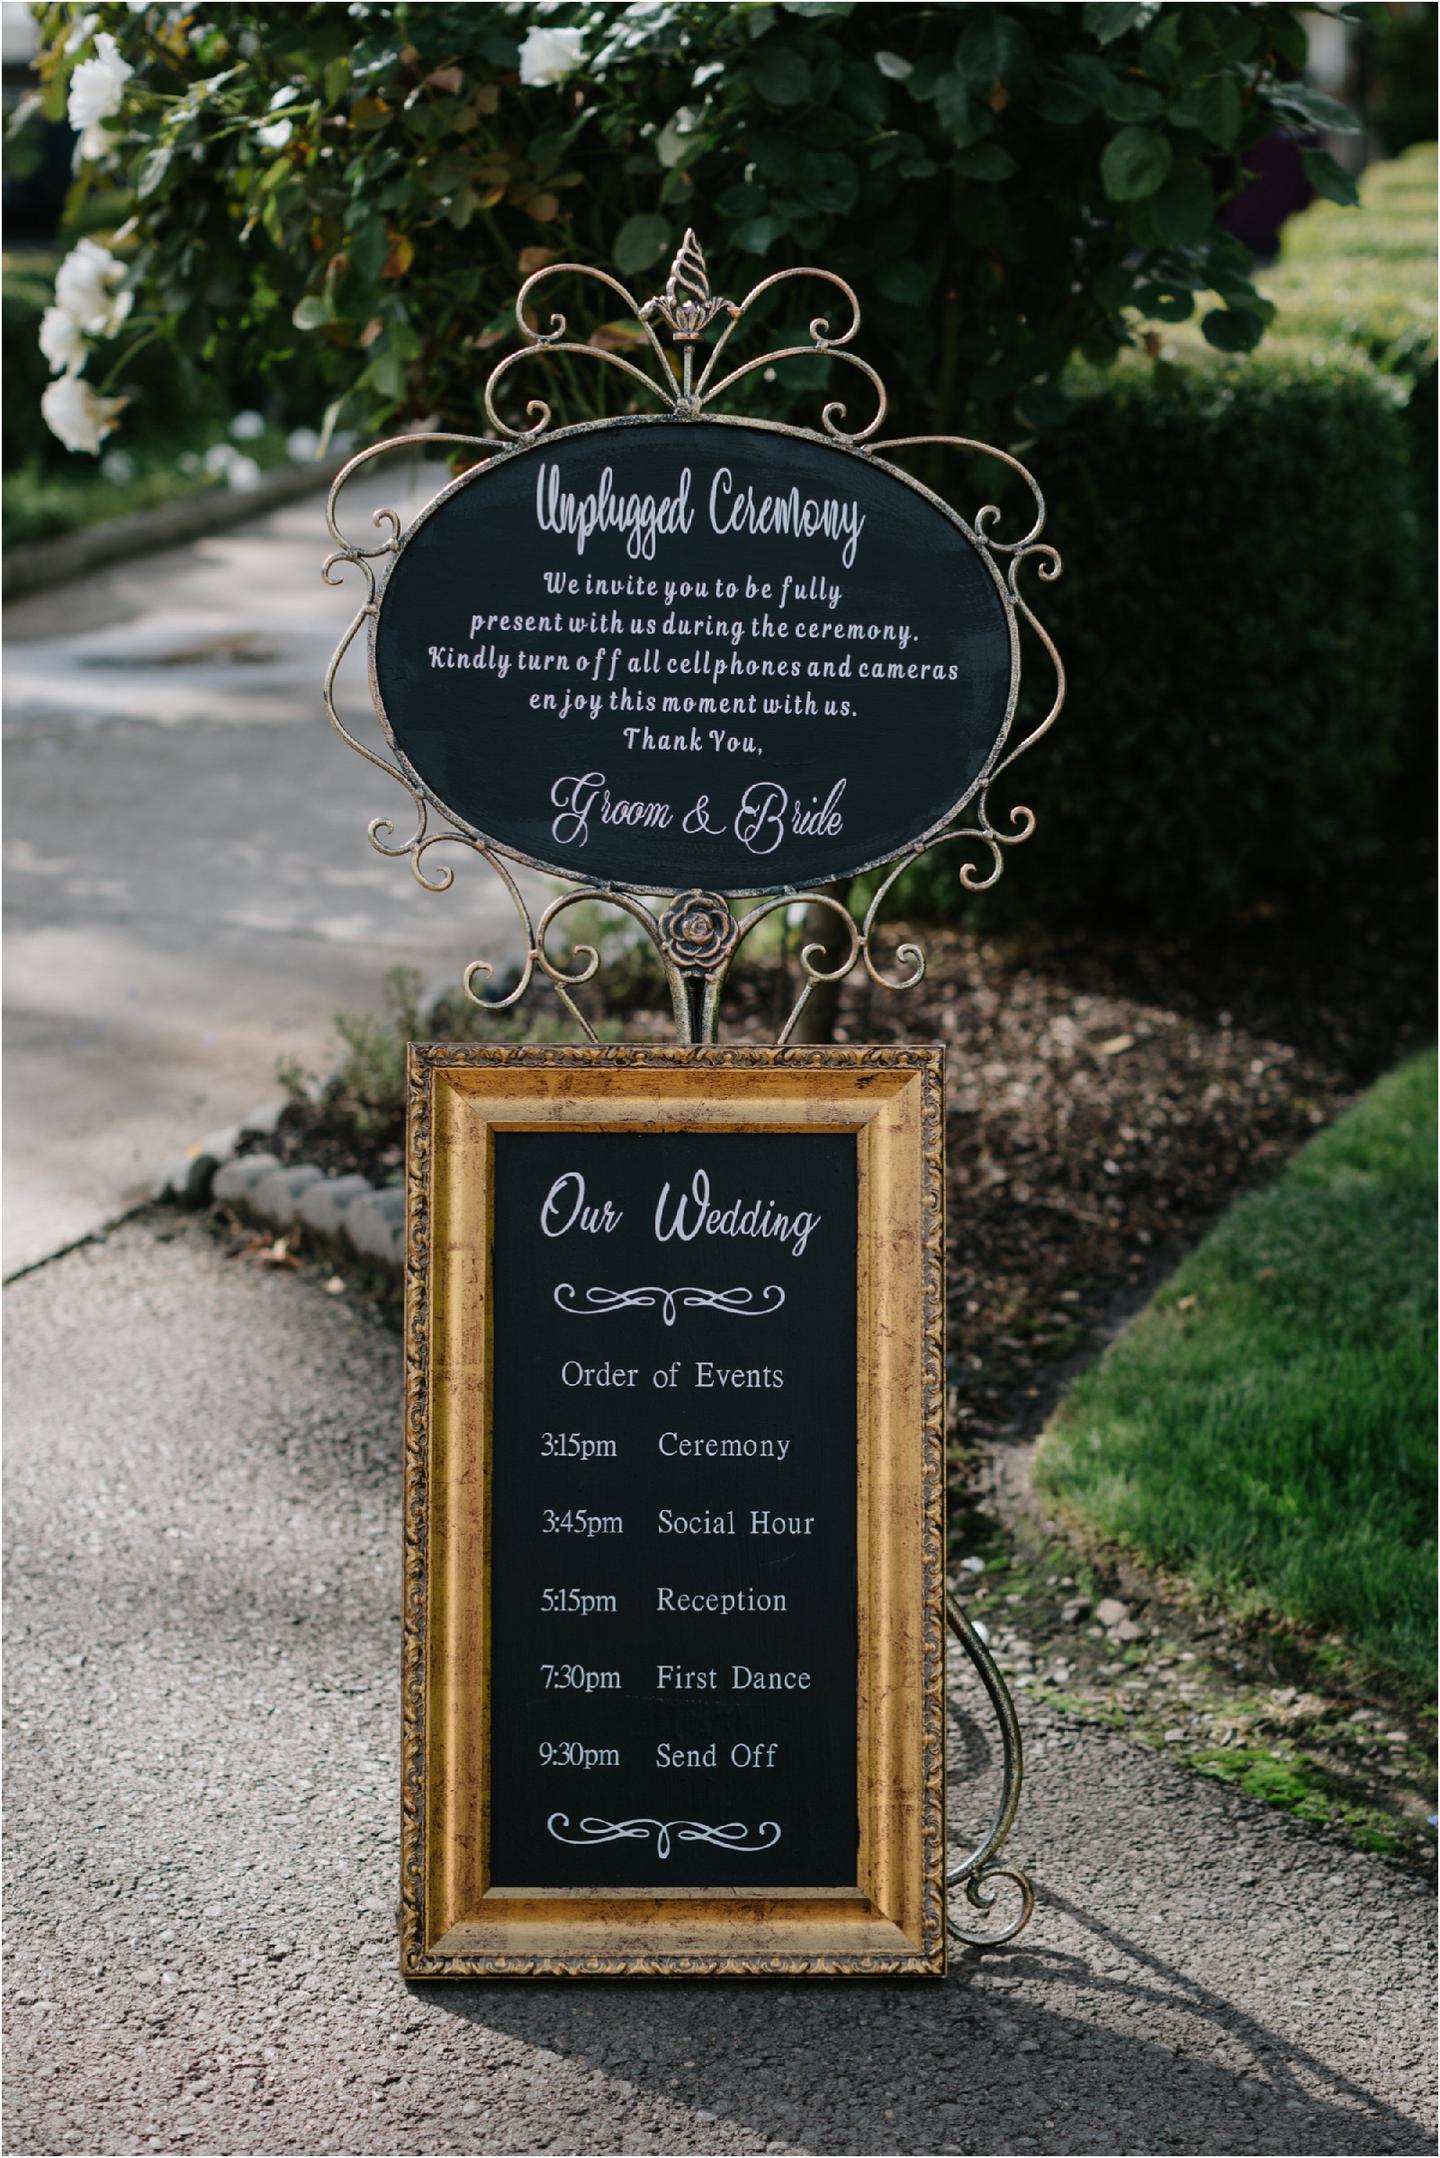 Unplugged Ceremony
We invite you to be fully
present with us during the ceremony.
Kindly turn off all cellphones and cameras
enjoy this moment with us.
Thank You,
Groom & Bride
Our Wedding
Order of Events
3:15pm Ceremony
3:45pm Social Hour
5:15pm Reception
7:30pm First Dance
9:30pm Send Off